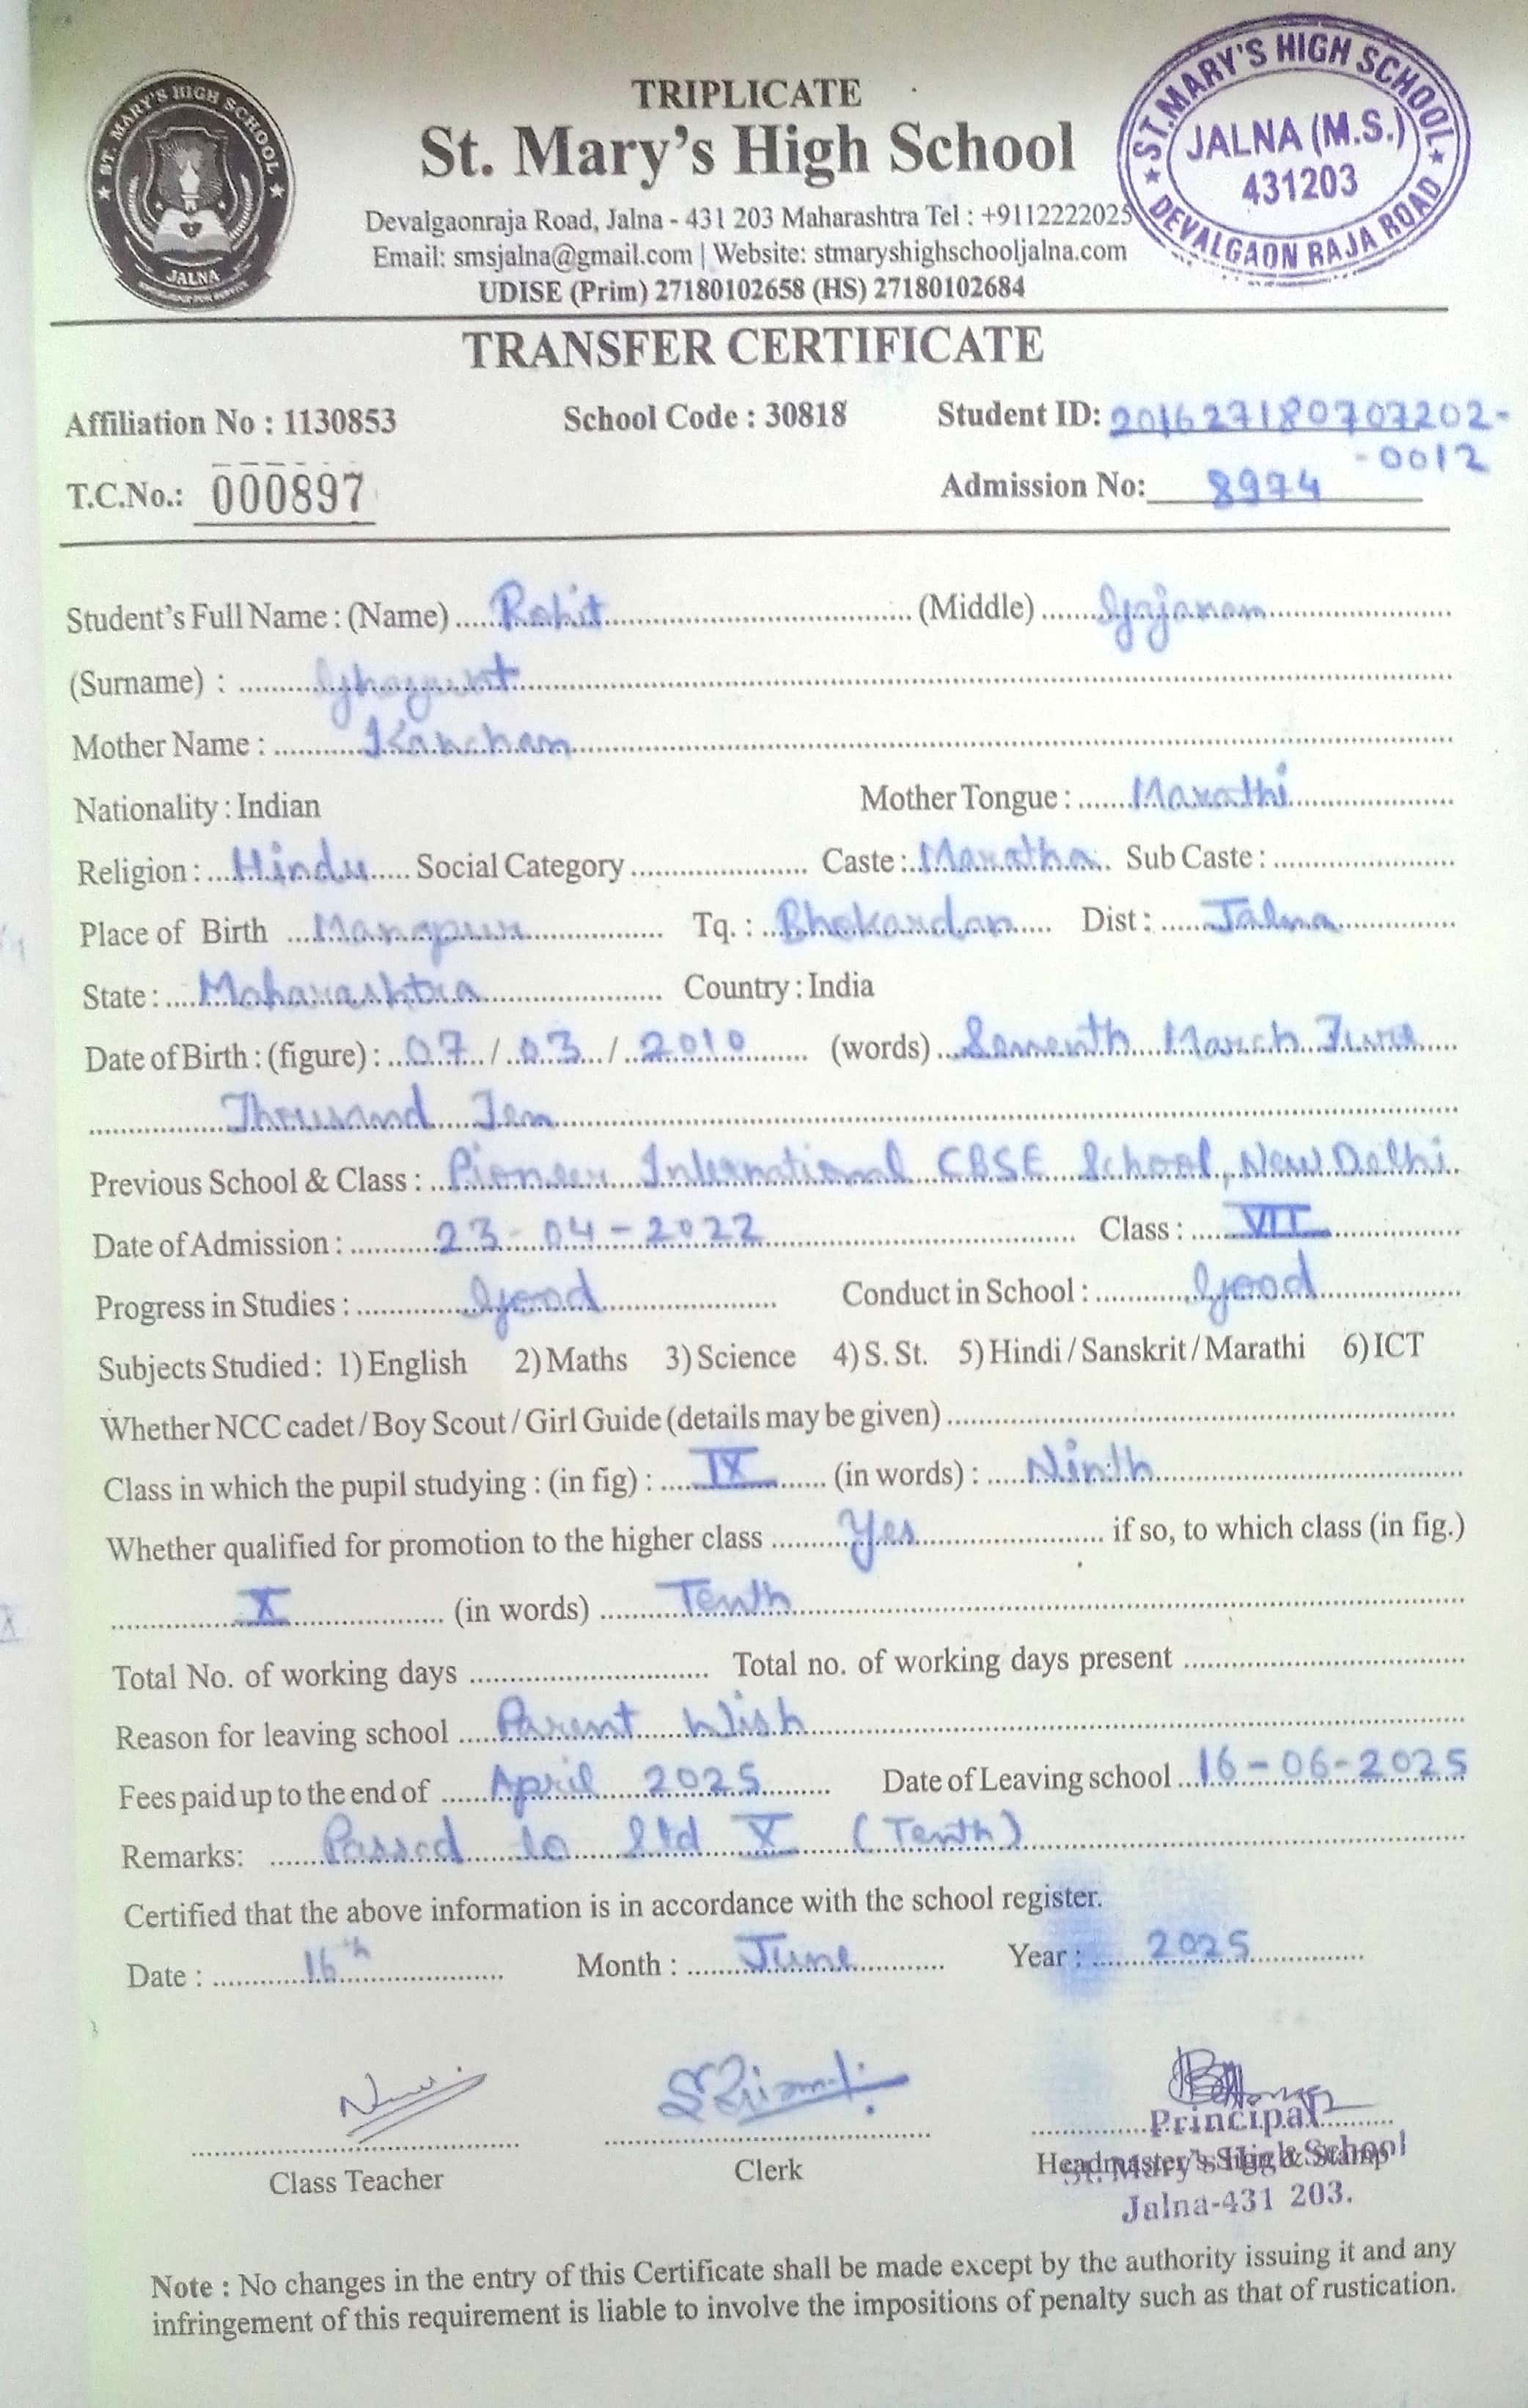 TRIPLICATE
St. Mary's High School
Devalgaonraja Road, Jalna - 431 203 Maharashtra Tel : +9112222025
Email: smsjalna@gmail.com | Website: stmaryshighschooljalna.com
UDISE (Prim) 27180102658 (HS) 27180102684
ST. MARY'S HIGH SCHOOL
JALNA
ST. MARY'S HIGH SCHOOL
JALNA (M.S.)
431203
DEVALGAON RAJA ROAD
TRANSFER CERTIFICATE
Affiliation No : 1130853 School Code : 30818 Student ID: 201627180707202-
-0012
T.C.No.: 000897 Admission No: 8974
Student's Full Name : (Name) Rohit (Middle) Gajanan
(Surname) :
Mother Name : Kanchan
Nationality : Indian Mother Tongue : Marathi
Religion : Hindu Social Category Caste : Maratha Sub Caste :
Place of Birth Tq. : Bhokardan Dist : Jalna
State : Maharashtra Country : India
Date of Birth : (figure) : 07 / 03 / 2010 (words) March
Thousand Ten
Previous School & Class : Pioneer International CBSE School, New Delhi
Date of Admission : 23-04-2022 Class : VII
Progress in Studies : Good Conduct in School : Good
Subjects Studied : 1) English 2) Maths 3) Science 4) S. St. 5) Hindi / Sanskrit / Marathi 6) ICT
Whether NCC cadet / Boy Scout / Girl Guide (details may be given)
Class in which the pupil studying : (in fig) : IX (in words) : Ninth
Whether qualified for promotion to the higher class Yes if so, to which class (in fig.)
X (in words) Tenth
Total No. of working days Total no. of working days present
Reason for leaving school Parent Wish
Fees paid up to the end of April 2025 Date of Leaving school 16-06-2025
Remarks: Passed to Std X (Tenth)
Certified that the above information is in accordance with the school register.
Date : 16th Month : June Year : 2025
Principal
Class Teacher Clerk Headmaster's Sign & Stamp
St. Mary's High School
Jalna-431 203.
Note : No changes in the entry of this Certificate shall be made except by the authority issuing it and any
infringement of this requirement is liable to involve the impositions of penalty such as that of rustication.